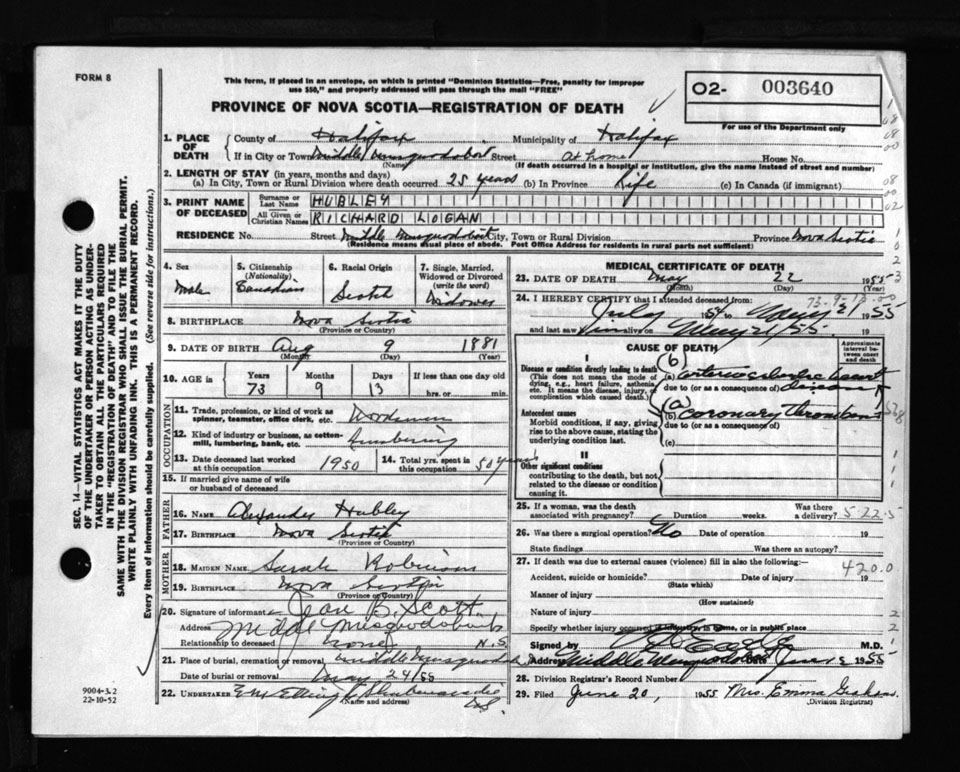 FORM 8
This form, if placed in an envelope, on which is printed "Dominion Statistics—Free, penalty for improper
use $50," and properly addressed will pass through the mail "FREE"
02- 003640
For use of the Department only
PROVINCE OF NOVA SCOTIA—REGISTRATION OF DEATH
1. PLACE OF DEATH { County of Halifax Municipality of Halifax
If in City or Town Middle Musquodoboit Street At home House No.
(Name) (If death occurred in a hospital or institution, give the name instead of street and number)
2. LENGTH OF STAY (in years, months and days)
(a) In City, Town or Rural Division where death occurred 25 years (b) In Province Life (c) In Canada (if immigrant)
3. PRINT NAME OF DECEASED { Surname or Last Name HUBLEY
All Given or Christian Names RICHARD LOGAN
RESIDENCE No. Street Middle Musquodoboit City, Town or Rural Division Province Nova Scotia
(Residence means usual place of abode. Post Office Address for residents in rural parts not sufficient)
4. Sex Male
5. Citizenship (Nationality) Canadian
6. Racial Origin Scotch
7. Single, Married, Widowed or Divorced (write the word) Widower
8. BIRTHPLACE Nova Scotia
(Province or Country)
9. DATE OF BIRTH Aug 9 1881
(Month) (Day) (Year)
10. AGE in Years 73 Months 9 Days 13 If less than one day old hrs. or min.
OCCUPATION
11. Trade, profession, or kind of work as spinner, teamster, office clerk, etc. Woodsman
12. Kind of industry or business, as cotton-mill, lumbering, bank, etc. Lumbering
13. Date deceased last worked at this occupation 1950
14. Total yrs. spent in this occupation 50 years
15. If married give name of wife or husband of deceased
FATHER
16. NAME Alexander Hubley
17. BIRTHPLACE Nova Scotia
(Province or Country)
MOTHER
18. MAIDEN NAME Sarah Robinson
19. BIRTHPLACE Nova Scotia
(Province or Country)
20. Signature of informant Jean B. Scott
Address Middle Musquodoboit
Relationship to deceased none N.S.
21. Place of burial, cremation or removal Middle Musquodoboit
Date of burial or removal May 24/55
22. UNDERTAKER Shubenacadie
(Name and address) N.S.
MEDICAL CERTIFICATE OF DEATH
23. DATE OF DEATH May 22 1955
(Month) (Day)
24. I HEREBY CERTIFY that I attended deceased from:
July 1954 to May 21 1955
and last saw him alive on May 21/55 19
73-9-13-00
CAUSE OF DEATH
Approximate interval between onset and death
I
Disease or condition directly leading to death
(This does not mean the mode of dying, e.g., heart failure, asthenia, etc. It means the disease, injury, or complication which caused death.)
(b)
(a) arteriosclerotic heart disease
due to (or as a consequence of)
Antecedent causes
Morbid conditions, if any, giving rise to the above cause, stating the underlying condition last.
(a)
(b) Coronary thrombosis
due to (or as a consequence of)
(c)
II
Other significant conditions
contributing to the death, but not related to the disease or condition causing it.
25. If a woman, was the death associated with pregnancy? Duration weeks. Was there a delivery? 5-22-5
26. Was there a surgical operation? No Date of operation 19
State findings Was there an autopsy?
27. If death was due to external causes (violence) fill in also the following:
420.0
Accident, suicide or homicide? Date of injury 19
(State which)
Manner of injury
(How sustained)
Nature of injury
Specify whether injury occurred in industry, in home, or in public place
Signed by M.D.
Address Middle Musquodoboit Date June 2 1955
28. Division Registrar's Record Number
29. Filed June 20, 1955 Mrs. Emma Graham
(Division Registrar)
SEC. 14—VITAL STATISTICS ACT MAKES IT THE DUTY
OF THE UNDERTAKER OR PERSON ACTING AS UNDER-
TAKER TO OBTAIN ALL THE PARTICULARS REQUIRED
IN THE "REGISTRATION OF DEATH" AND TO FILE THE
SAME WITH THE DIVISION REGISTRAR WHO SHALL ISSUE THE BURIAL PERMIT.
WRITE PLAINLY WITH UNFADING INK. THIS IS A PERMANENT RECORD.
Every item of information should be carefully supplied. (See reverse side for instructions.)
9004-3.2
22-10-52